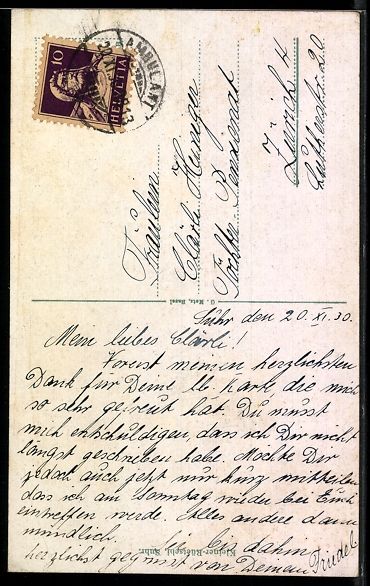 10
HELVETIA
AMBULANT
Fräulein
Clärli
Töchter-Pensionat
Zürich 4
Lutherstr. 20
G. Metz, Basel
Suhr den 20. XI. 30.
Mein liebes Clärli!
Vorerst meinen herzlichsten
Dank für Deine lb. Karte die mich
so sehr gefreut hat. Du musst
mich entschuldigen, dass ich Dir nicht
längst geschrieben habe. Möchte Dir
jedoch auch jetzt nur kurz mitteilen
dass ich am Sonntag wieder bei Euch
eintreffen werde. Alles andere dann
mündlich.
Sei bis dahin
herzlichst gegrüsst von Deinem Friedel.